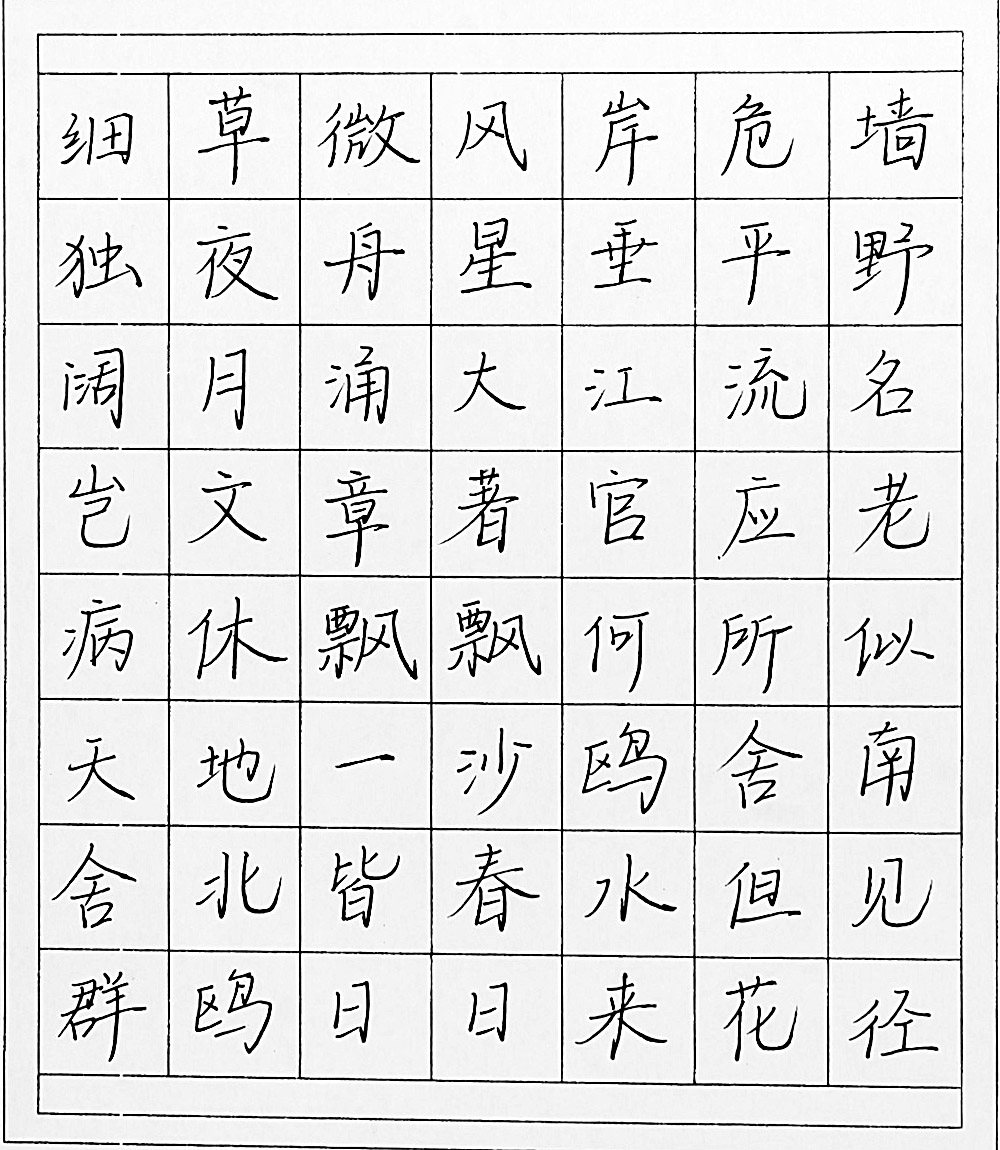 细草微风岸危墙
独夜舟星垂平野
阔月涌大江流名
岂文章著官应老
病休飘飘何所似
天地一沙鸥舍南
舍北皆春水但见
群鸥日日来花径